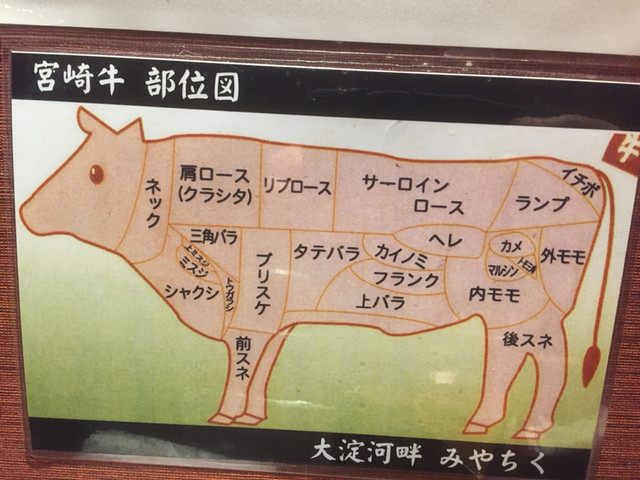 宮崎牛 部位図
牛
ネック
肩ロース
(クラシタ)
リブロース
サーロイン
ロース
ランプ
イチボ
三角バラ
上ミスジ
ミスジ
シャクシ
トウガラシ
ブリスケ
タテバラ
カイノミ
フランク
上バラ
ヘレ
カメ
マルシン
外モモ
内モモ
前スネ
後スネ
大淀河畔 みやちく